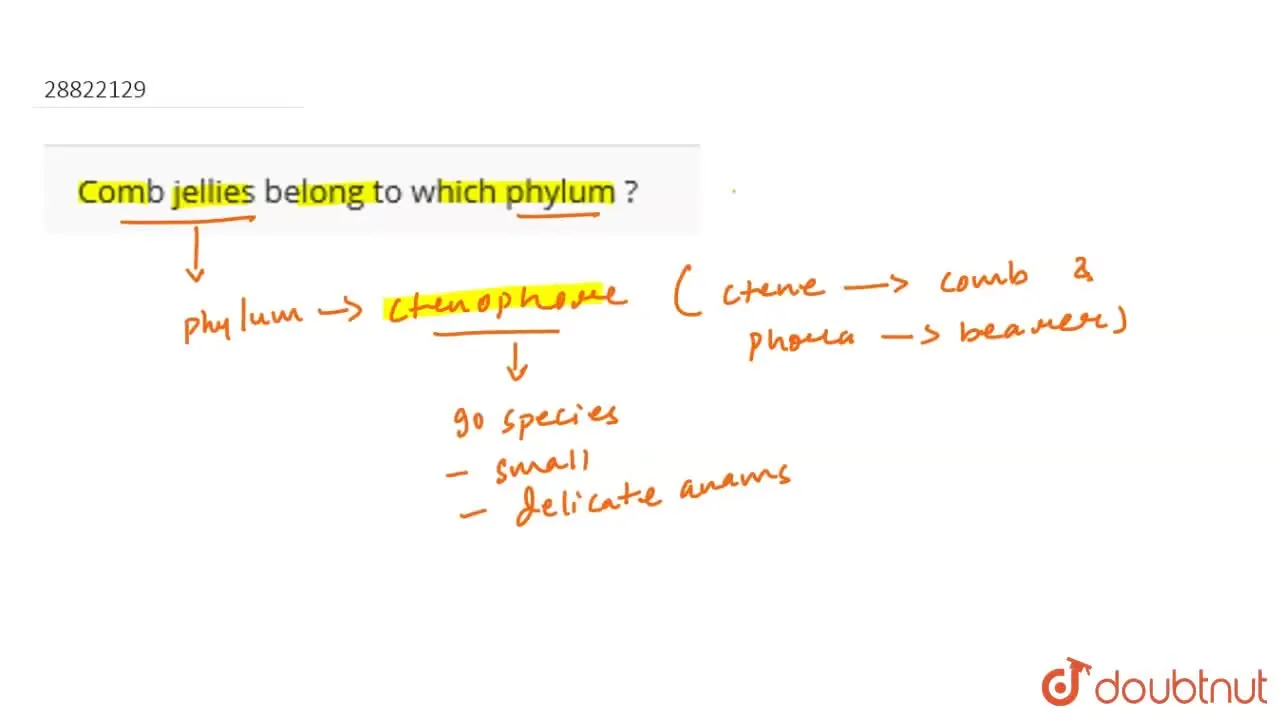 28822129
Comb jellies belong to which phylum ?
phylum → ctenophore ( ctene → comb &
phora → bearer)
90 species
- small
- delicate anams
doubtnut